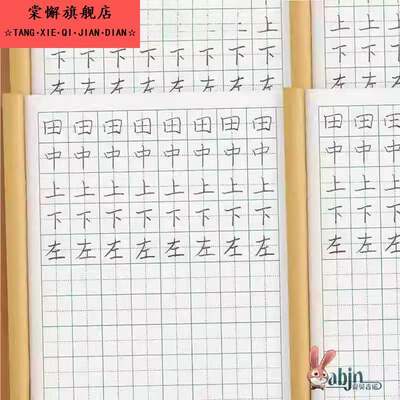 棠懈旗舰店
☆TANG·XIE·QI·JIAN·DIAN☆
上
下下下下下下下下
左左左左左左左左
上上上
下下下
左左左
田田田田田田田田
中中中中中中中中
上上上上上上上上
下下下下下下下下
左左左左左左左左
田田田
中中中
上上上
下下下
左左左
abjn